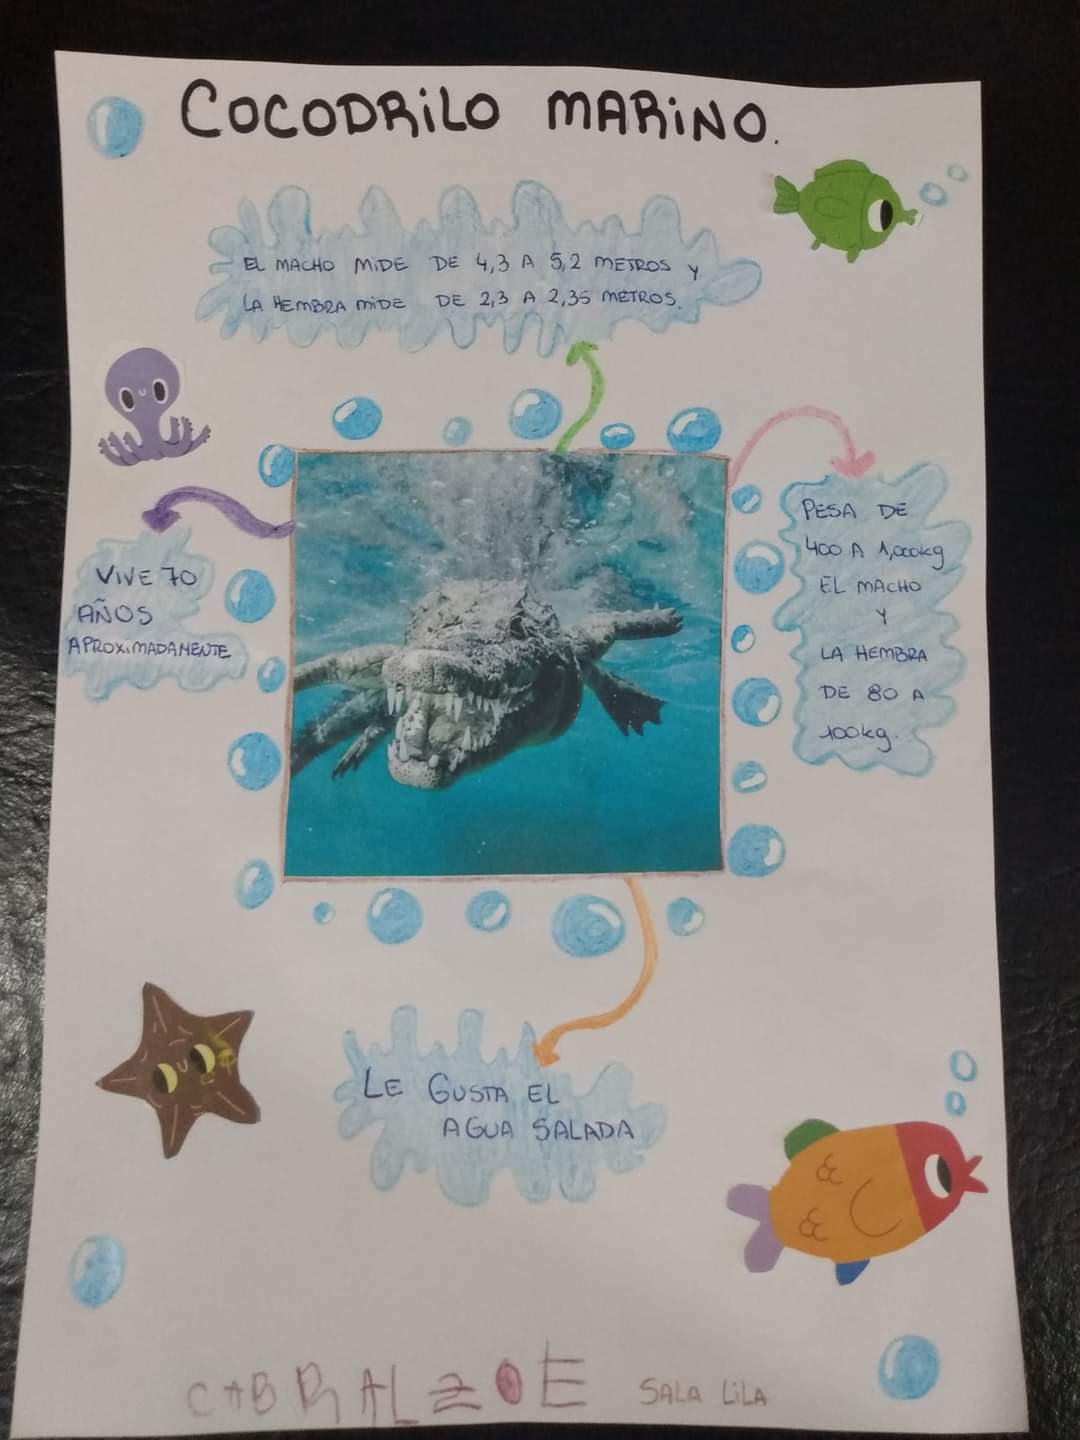 COCODRILO MARINO.
EL MACHO MIDE DE 4,3 A 5,2 METROS Y
LA HEMBRA MIDE DE 2,3 A 2,35 METROS.
VIVE 70
AÑOS
APROXIMADAMENTE
PESA DE
400 A 1,000kg
EL MACHO
Y
LA HEMBRA
DE 80 A
100kg.
LE GUSTA EL
AGUA SALADA
CABRAL ZOE SALA LILA